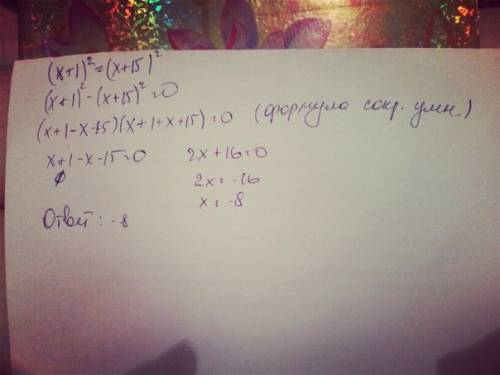 (x+1)²=(x+15)²
(x+1)²-(x+15)²=0
(x+1-x-15)(x+1+x+15)=0 (формула сокр. умн)
x+1-x-15=0 2x+16=0
∅ 2x=-16
x=-8
Ответ: -8